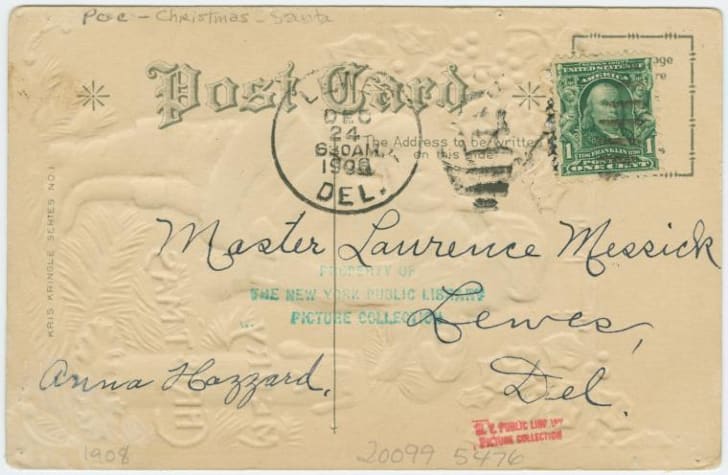 PC - Christmas - Santa
Post Card
The Address to be written
on this side
DEC
24
630AM
1908
DEL.
UNITED STATES OF
AMERICA
1 FRANKLIN 1
POSTAGE
ONE CENT
KRIS KRINGLE SERIES NO. 1
Master Laurence Messick
PROPERTY OF
THE NEW YORK PUBLIC LIBRARY
PICTURE COLLECTION
Lewes,
Anna Hazzard.
Del.
N. Y. PUBLIC LIBRARY
PICTURE COLLECTION
1908
20099 5476